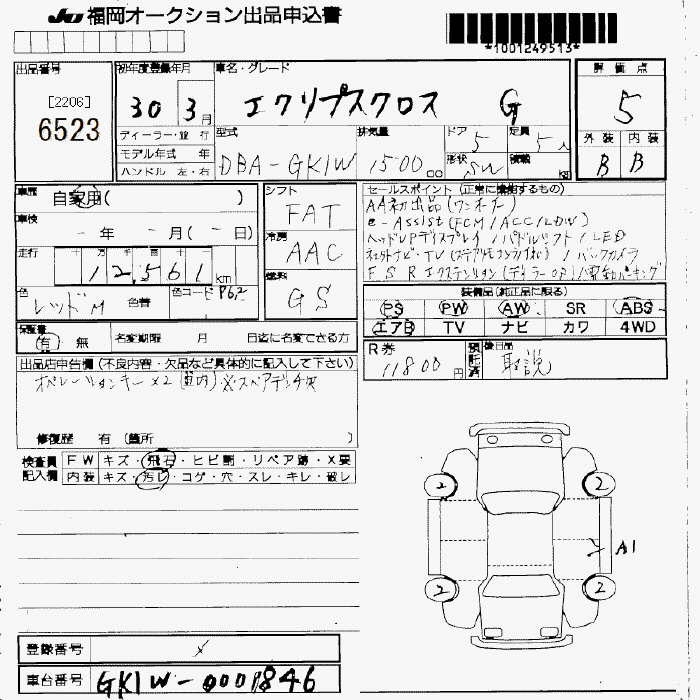 JU 福岡オークション出品申込書
*1001249513*
出品番号
[2206]
6523
初年度登録年月
30 3月
車名・グレード
エクリプスクロス G
評価点
5
外装 内装
B B
ディーラー・並行
モデル年式 年
ハンドル 左・右
型式
DBA-GK1W
排気量
1500 cc
ドア
5
形状
SW
定員
5人
積載
kg
車歴
自家用( )
車検
- 年 - 月(- 日)
走行
十万千百十
12,561 km
色
レッドM 色替
色コード P62
シフト
FAT
冷房
AAC
燃料
GS
セールスポイント(正常に機能するもの)
AA初出品(ワンオーナー)
e-Assist(FCM/ACC/LDW)
ヘッドUPディスプレイ/パドルシフト/LED
/バックカメラ
F S R エクステンション(ディーラーOP)/電動パーキング
装備品(純正品に限る)
PS PW AW SR ABS
エアB TV ナビ カワ 4WD
保証書
有 無 名変期限 月 日迄に名変できる方
R券
11800円
預託済
後日品
取説
出品店申告欄(不良内容・欠品など具体的に記入して下さい)
オペレーションキー×2(車内)
修復歴 有(箇所 )
検査員記入欄
FW キズ・飛石・ヒビ割・リペア跡・X要
内装 キズ・汚レ・コゲ・穴・スレ・キレ・破レ
2 2
A1
2 2
登録番号
車台番号 GK1W-0001846